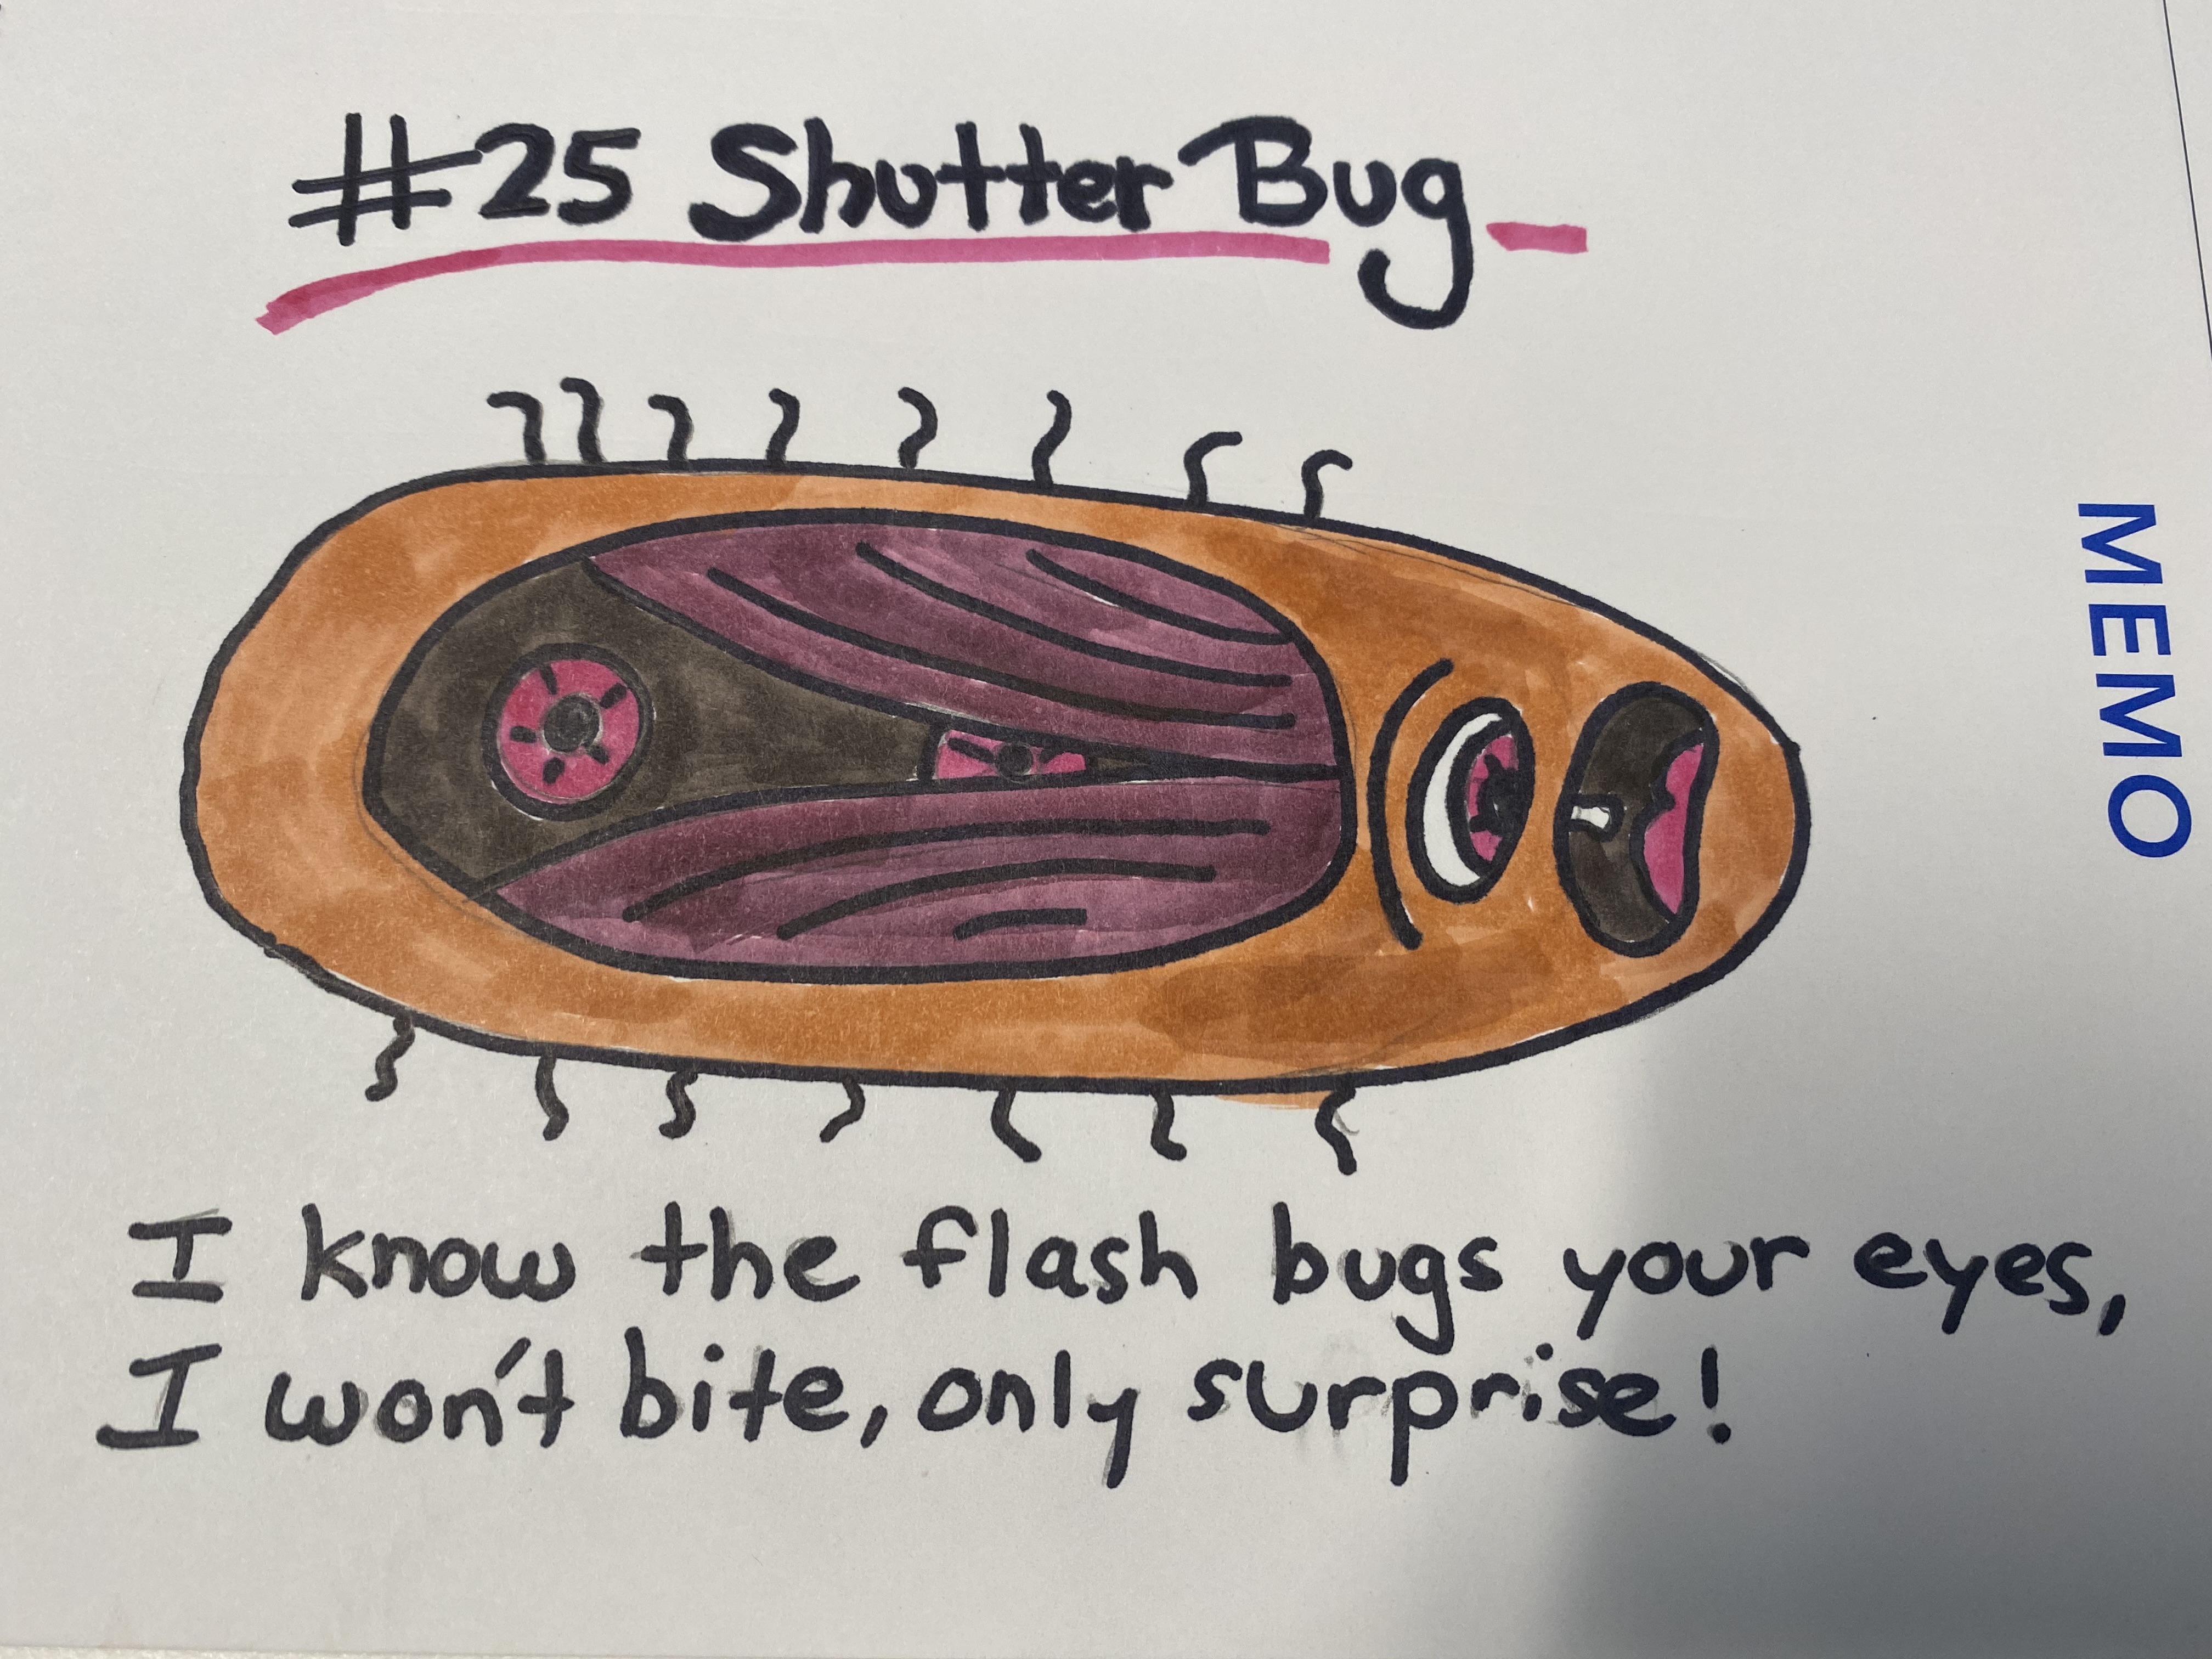 #25 Shutter Bug
MEMO
I know the flash bugs your eyes,
I won't bite, only surprise!